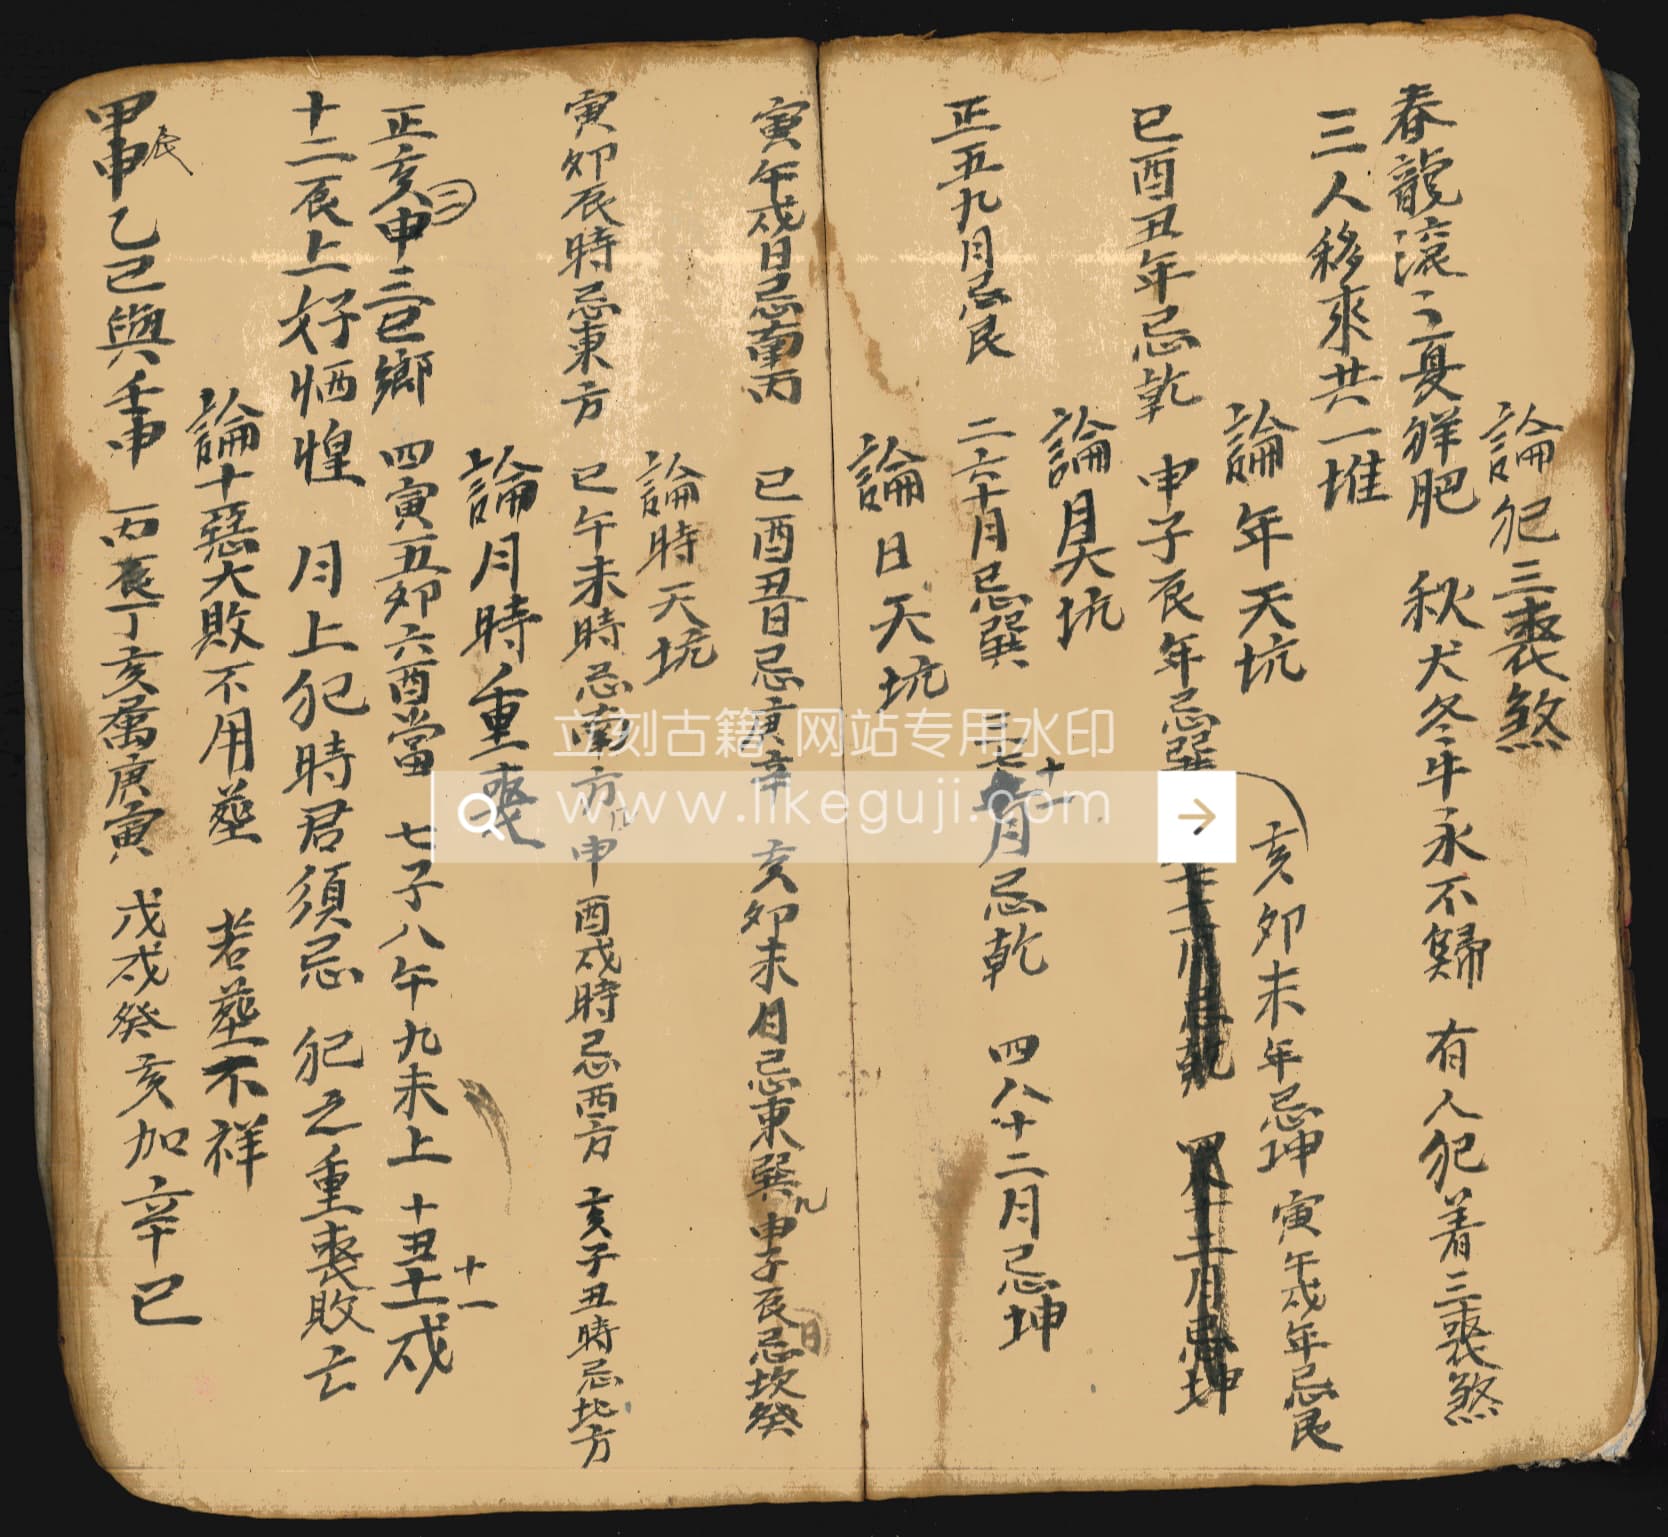 論犯三喪煞
春龍滾〻夏鮮肥 秋犬冬牛永不歸 有人犯着三喪煞
三人移來共一堆
論年天坑
亥卯未年忌坤 寅午戌年忌艮
巳酉丑年忌乾 申子辰年忌巽
四八十二月忌坤
論月天坑
正五九月忌艮 二六十月忌巽 三七十一月忌乾 四八十二月忌坤
論日天坑
寅午戌日忌南丙 巳酉丑日忌庚辛 亥卯未日忌東巽 申子辰日忌坎癸
論時天坑
寅卯辰時忌東方 巳午未時忌南方 申酉戌時忌西方 亥子丑時忌北方
論月時重喪
正亥二申三巳鄉 四寅五卯六酉當 七子八午九未上 十丑十一戌
十二辰上好恓惶 月上犯時君須忌 犯之重喪敗亡
論十惡大敗不用葬 若葬不祥
甲辰乙巳與壬申 丙辰丁亥屬庚寅 戊戌癸亥加辛巳
立刻古籍 网站专用水印
www.likeguji.com